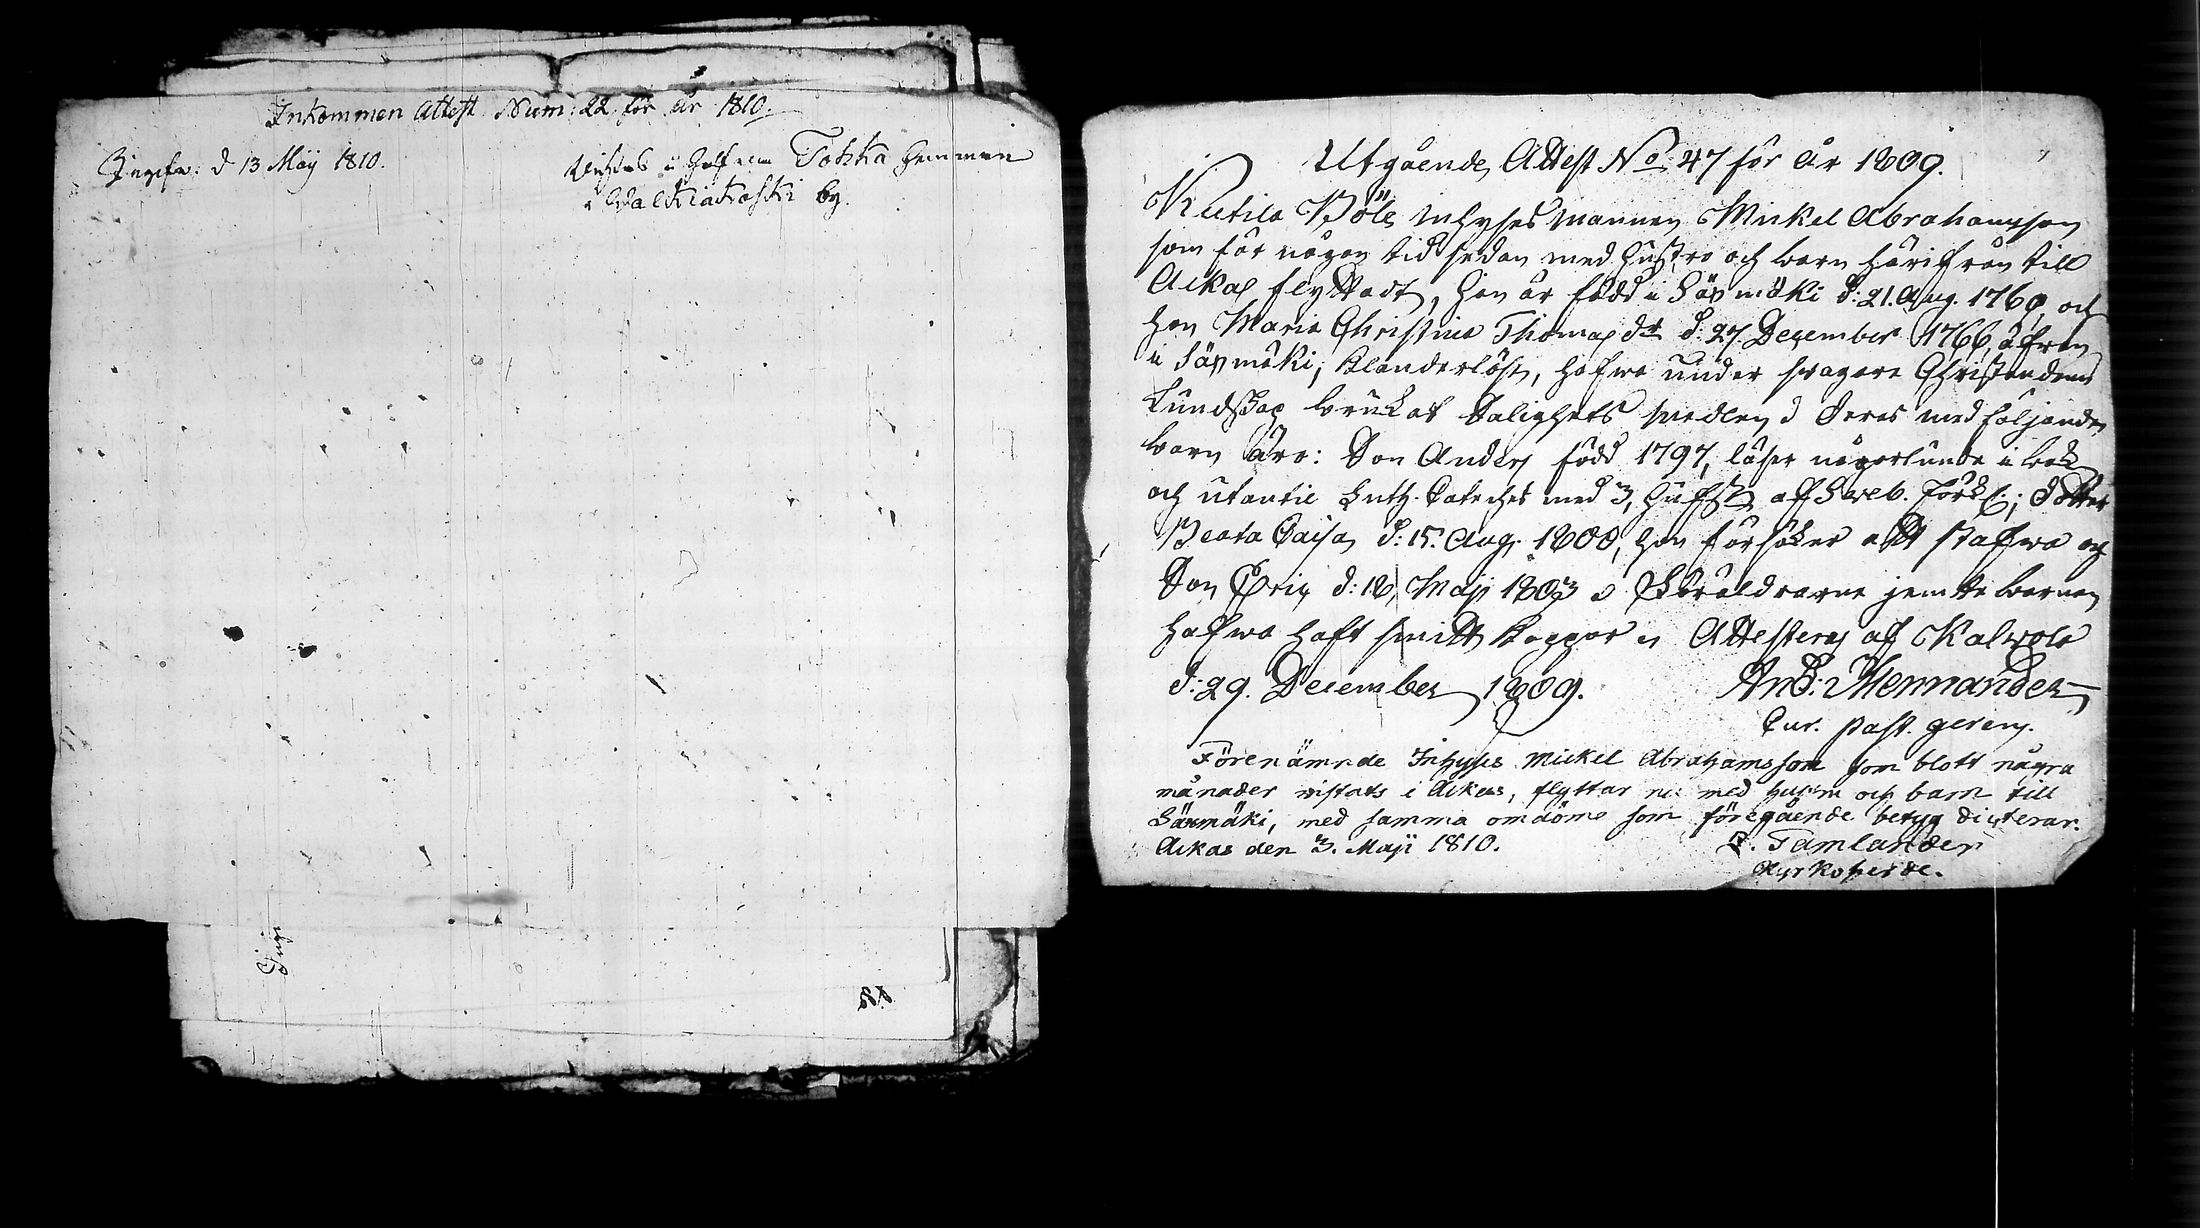 Inkommen Attest Num: 22 för år 1810.
Ingifn: d 13 Maij 1810.
Vistas i Tokka hemman
i Walkiakoski by.
Ingi
Utgående Attest No 47 för år 1809.
Kutila Böle Inhyses Mannen Mickel Abrahamsson
som för någon tid sedan med hustro och barn härifrån till
Ackas flyttadt, han är född i Säxmäki d: 21. Aug. 1760, och
hon Maria Christina Thomas dr d: 27 December 1766, äfven
i Säxmäki, klanderlöse, hafwa under swagare Christendoms
kundskap brukat Salighets medlen. Deras medföljande
barn äro: Son Anders född 1797, läser någorlunda i bok
och utantil Luth. Cateches med 3, Hufst. af Sweb. förkl.; Dotter
Beata Caisa d: 15. Aug. 1800, hon försöker att stafwa och
Son Eric d: 18, Maji 1803. Föräldrarne jemte barnen
hafwa haft smitt koppor. Attesteras af Kalwola
d: 29. December 1809. And: Mennander
Cur. past. gerens.
Förenämnde Inhyses Mickel Abrahamsson som blott några
månader vistats i Ackas, flyttar nu med hustru och barn till
Säxmäki, med samma omdöme som föregående betyg dicterar.
Ackas den 3. Maji 1810. Tamlander
Kyrkoherde.